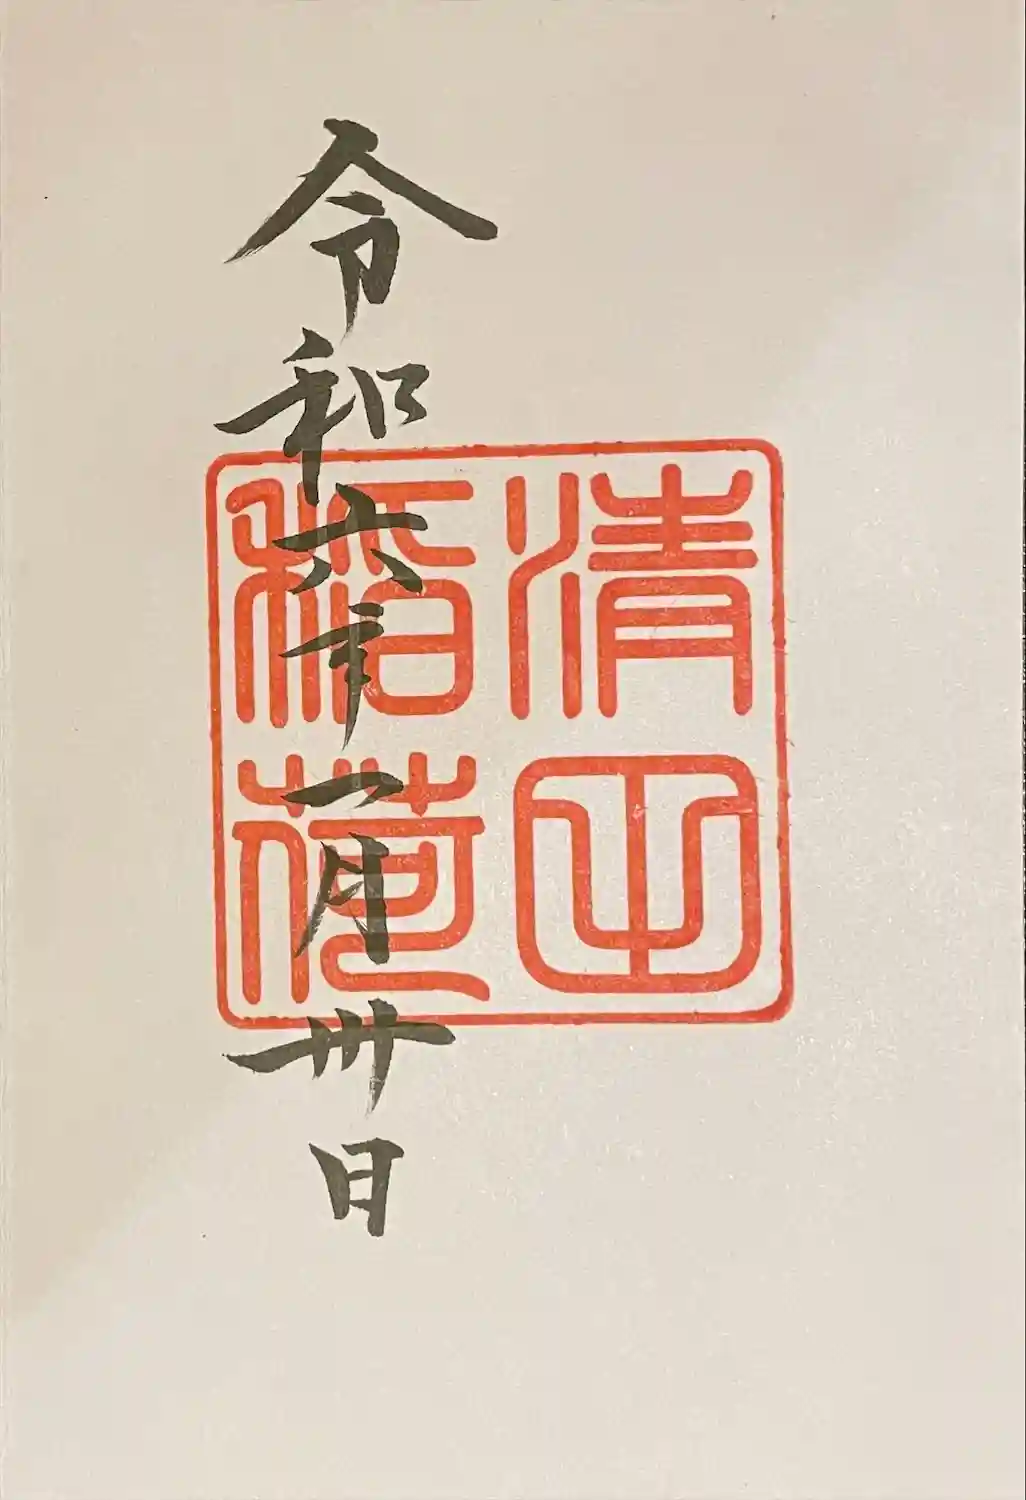 清
稲荷
令和六年一月卅日